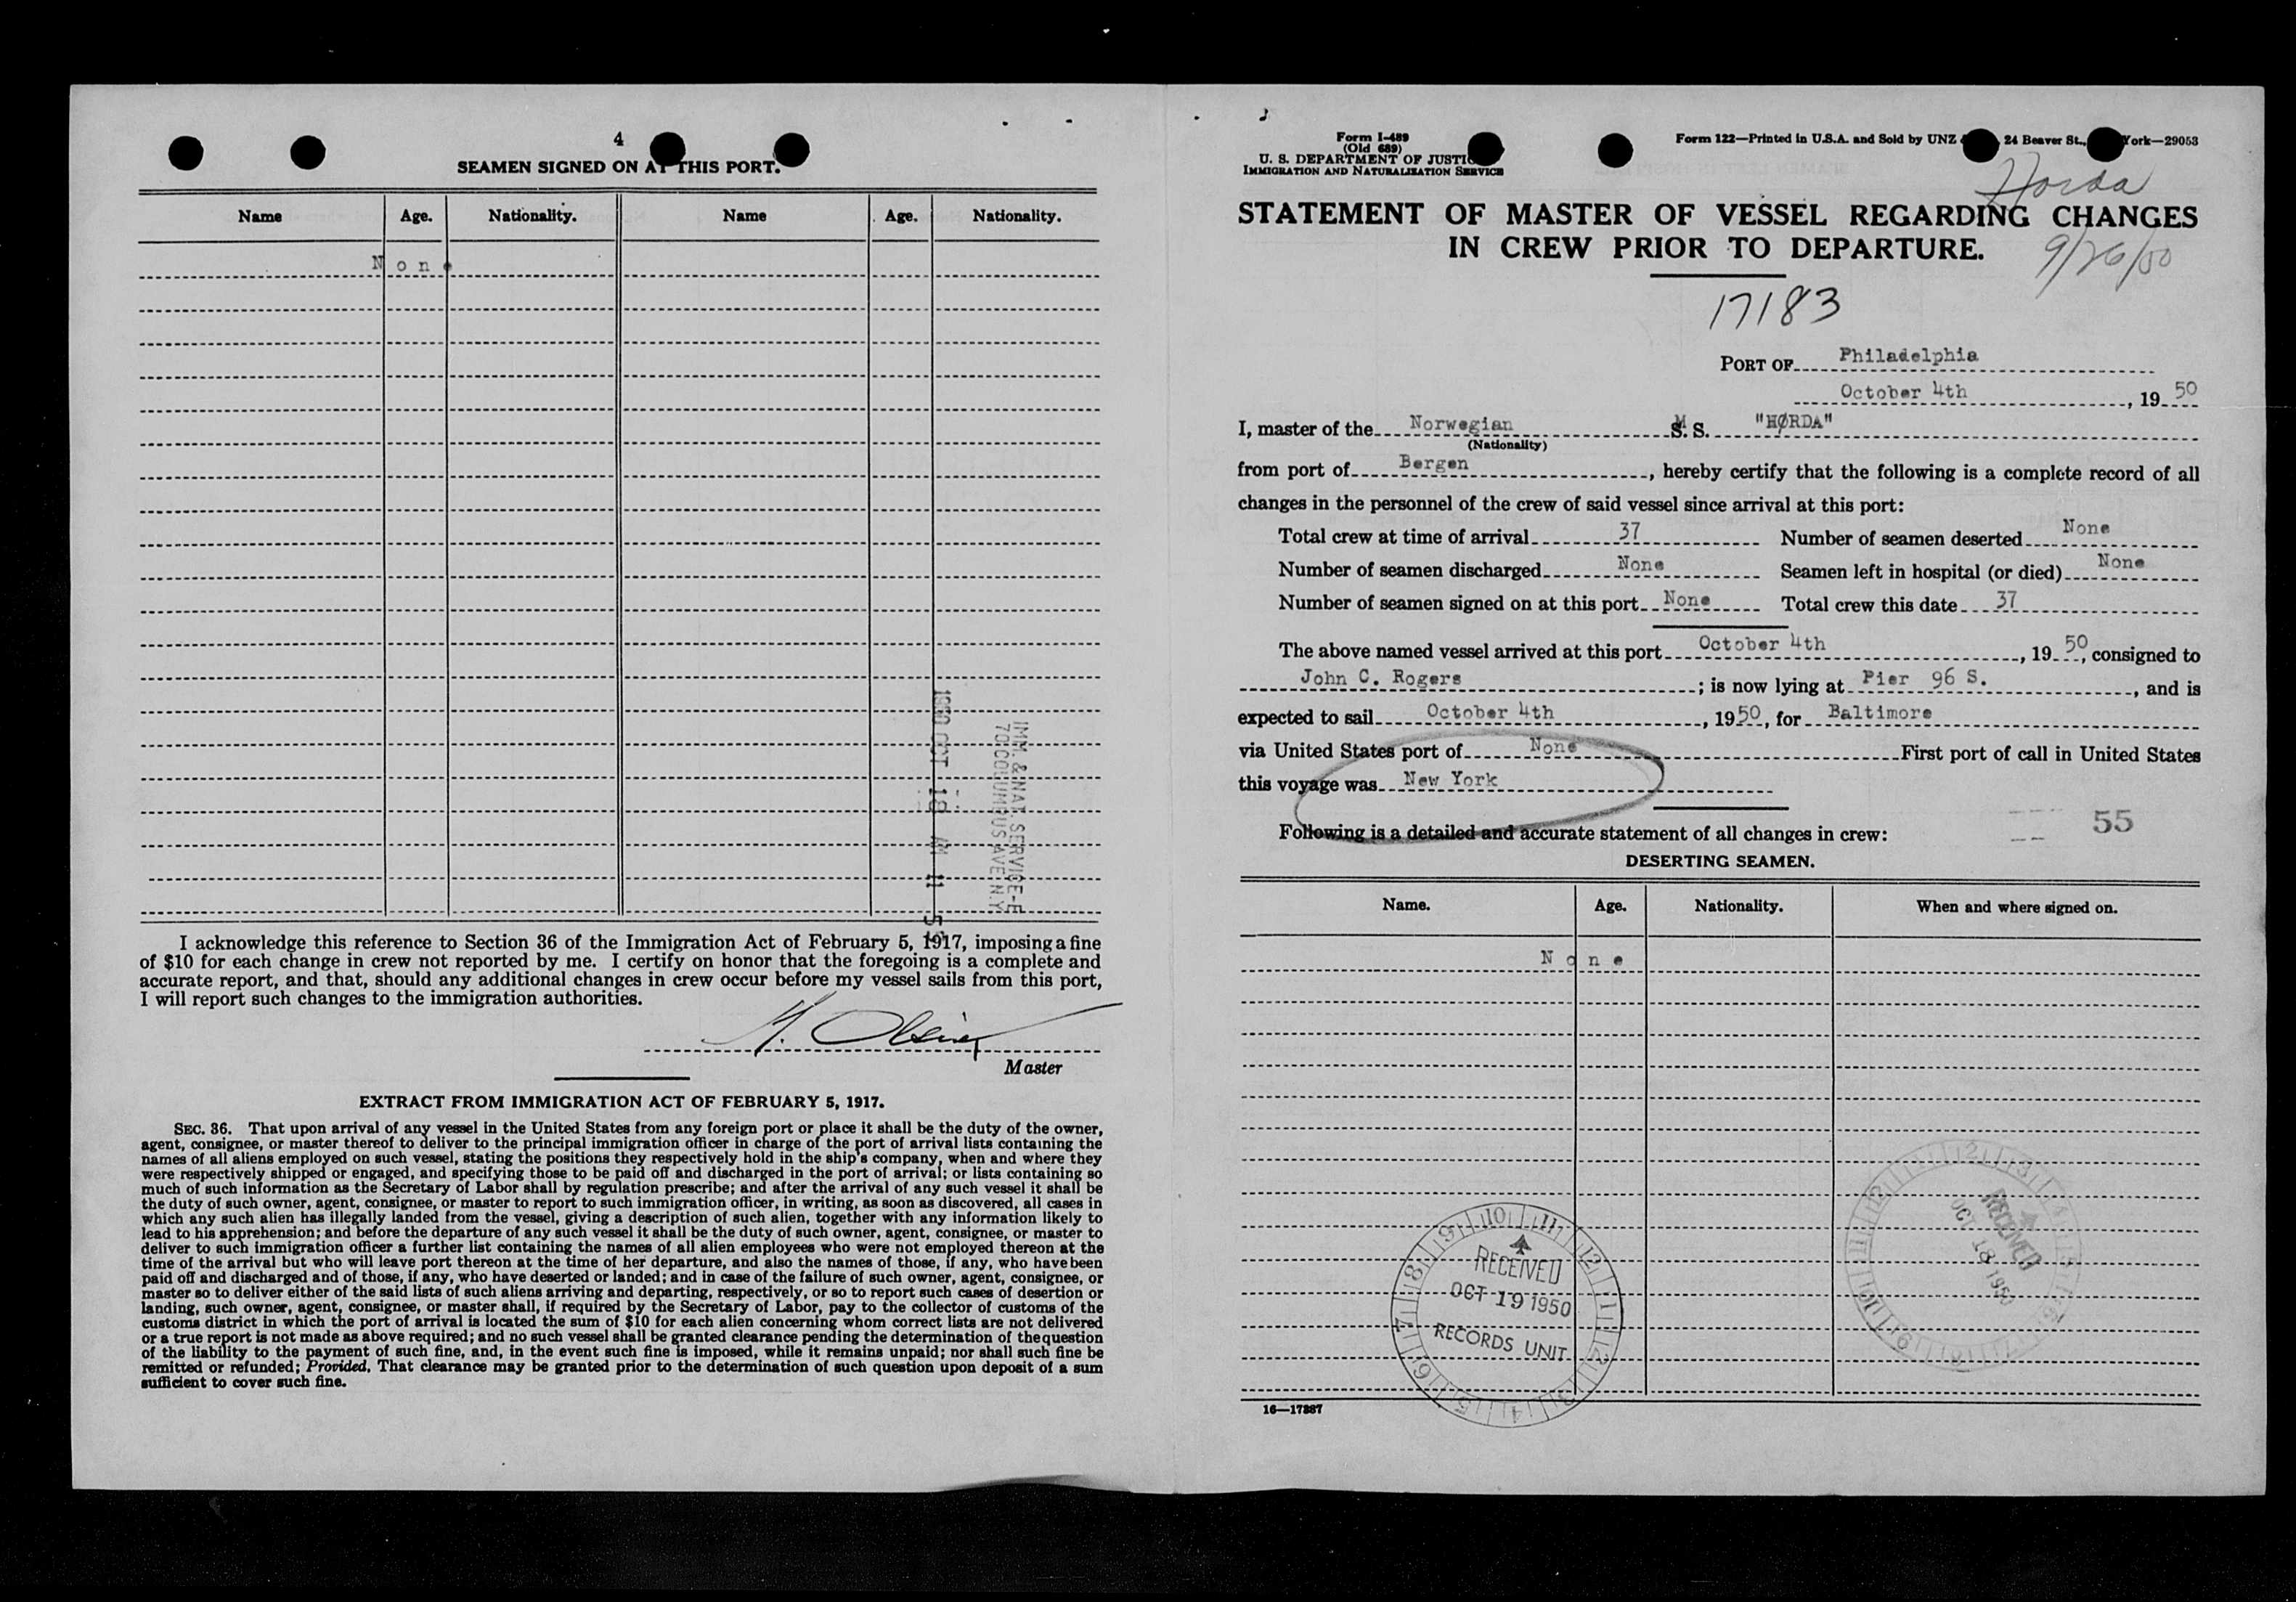 4
SEAMEN SIGNED ON AT THIS PORT.
Name Age. Nationality. Name Age. Nationality.
None
1950 OCT 18 AM 11 5
IMM. & NAT. SERVICE
70 COLUMBUS AVE N.Y
I acknowledge this reference to Section 36 of the Immigration Act of February 5, 1917, imposing a fine
of $10 for each change in crew not reported by me. I certify on honor that the foregoing is a complete and
accurate report, and that, should any additional changes in crew occur before my vessel sails from this port,
I will report such changes to the immigration authorities.
Master
EXTRACT FROM IMMIGRATION ACT OF FEBRUARY 5, 1917.
SEC. 36. That upon arrival of any vessel in the United States from any foreign port or place it shall be the duty of the owner,
agent, consignee, or master thereof to deliver to the principal immigration officer in charge of the port of arrival lists containing the
names of all aliens employed on such vessel, stating the positions they respectively hold in the ship's company, when and where they
were respectively shipped or engaged, and specifying those to be paid off and discharged in the port of arrival; or lists containing so
much of such information as the Secretary of Labor shall by regulation prescribe; and after the arrival of any such vessel it shall be
the duty of such owner, agent, consignee, or master to report to such immigration officer, in writing, as soon as discovered, all cases in
which any such alien has illegally landed from the vessel, giving a description of such alien, together with any information likely to
lead to his apprehension; and before the departure of any such vessel it shall be the duty of such owner, agent, consignee, or master to
deliver to such immigration officer a further list containing the names of all alien employees who were not employed thereon at the
time of the arrival but who will leave port thereon at the time of her departure, and also the names of those, if any, who have been
paid off and discharged and of those, if any, who have deserted or landed; and in case of the failure of such owner, agent, consignee, or
master so to deliver either of the said lists of such aliens arriving and departing, respectively, or so to report such cases of desertion or
landing, such owner, agent, consignee, or master shall, if required by the Secretary of Labor, pay to the collector of customs of the
customs district in which the port of arrival is located the sum of $10 for each alien concerning whom correct lists are not delivered
or a true report is not made as above required; and no such vessel shall be granted clearance pending the determination of the question
of the liability to the payment of such fine, and, in the event such fine is imposed, while it remains unpaid; nor shall such fine be
remitted or refunded; Provided, That clearance may be granted prior to the determination of such question upon deposit of a sum
sufficient to cover such fine.
Form I-489
(Old 689)
U. S. DEPARTMENT OF JUSTIC
IMMIGRATION AND NATURALIZATION SERVICE
Form 122—Printed in U.S.A. and Sold by UNZ 24 Beaver St., York—29053
Horda
STATEMENT OF MASTER OF VESSEL REGARDING CHANGES
IN CREW PRIOR TO DEPARTURE.
9/26/50
17183
PORT OF Philadelphia
October 4th, 19 50
I, master of the Norwegian M. S. "HØRDA"
(Nationality)
from port of Bergen, hereby certify that the following is a complete record of all
changes in the personnel of the crew of said vessel since arrival at this port:
Total crew at time of arrival 37 Number of seamen deserted None
Number of seamen discharged None Seamen left in hospital (or died) None
Number of seamen signed on at this port None Total crew this date 37
The above named vessel arrived at this port October 4th, 19 50, consigned to
John C. Rogers; is now lying at Pier 96 S., and is
expected to sail October 4th, 1950, for Baltimore
via United States port of None First port of call in United States
this voyage was New York
55
Following is a detailed and accurate statement of all changes in crew:
DESERTING SEAMEN.
Name. Age. Nationality. When and where signed on.
None
RECEIVED
OCT 18 1950
RECEIVED
OCT 19 1950
RECORDS UNIT
16—17887